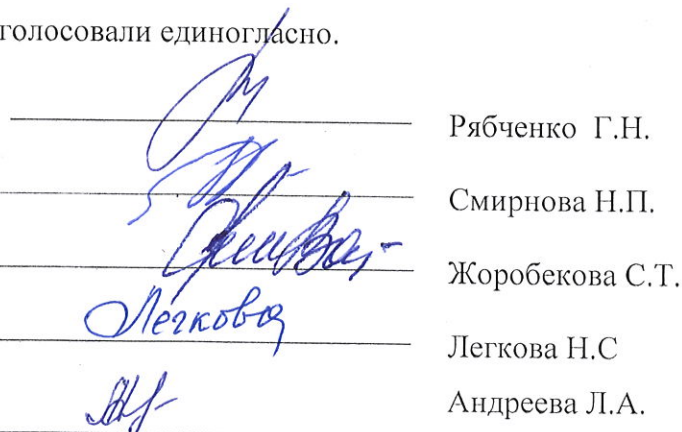 голосовали единогласно.
Рябченко Г.Н.
Смирнова Н.П.
Жоробекова С.Т.
Легкова
Легкова Н.С
Андреева Л.А.